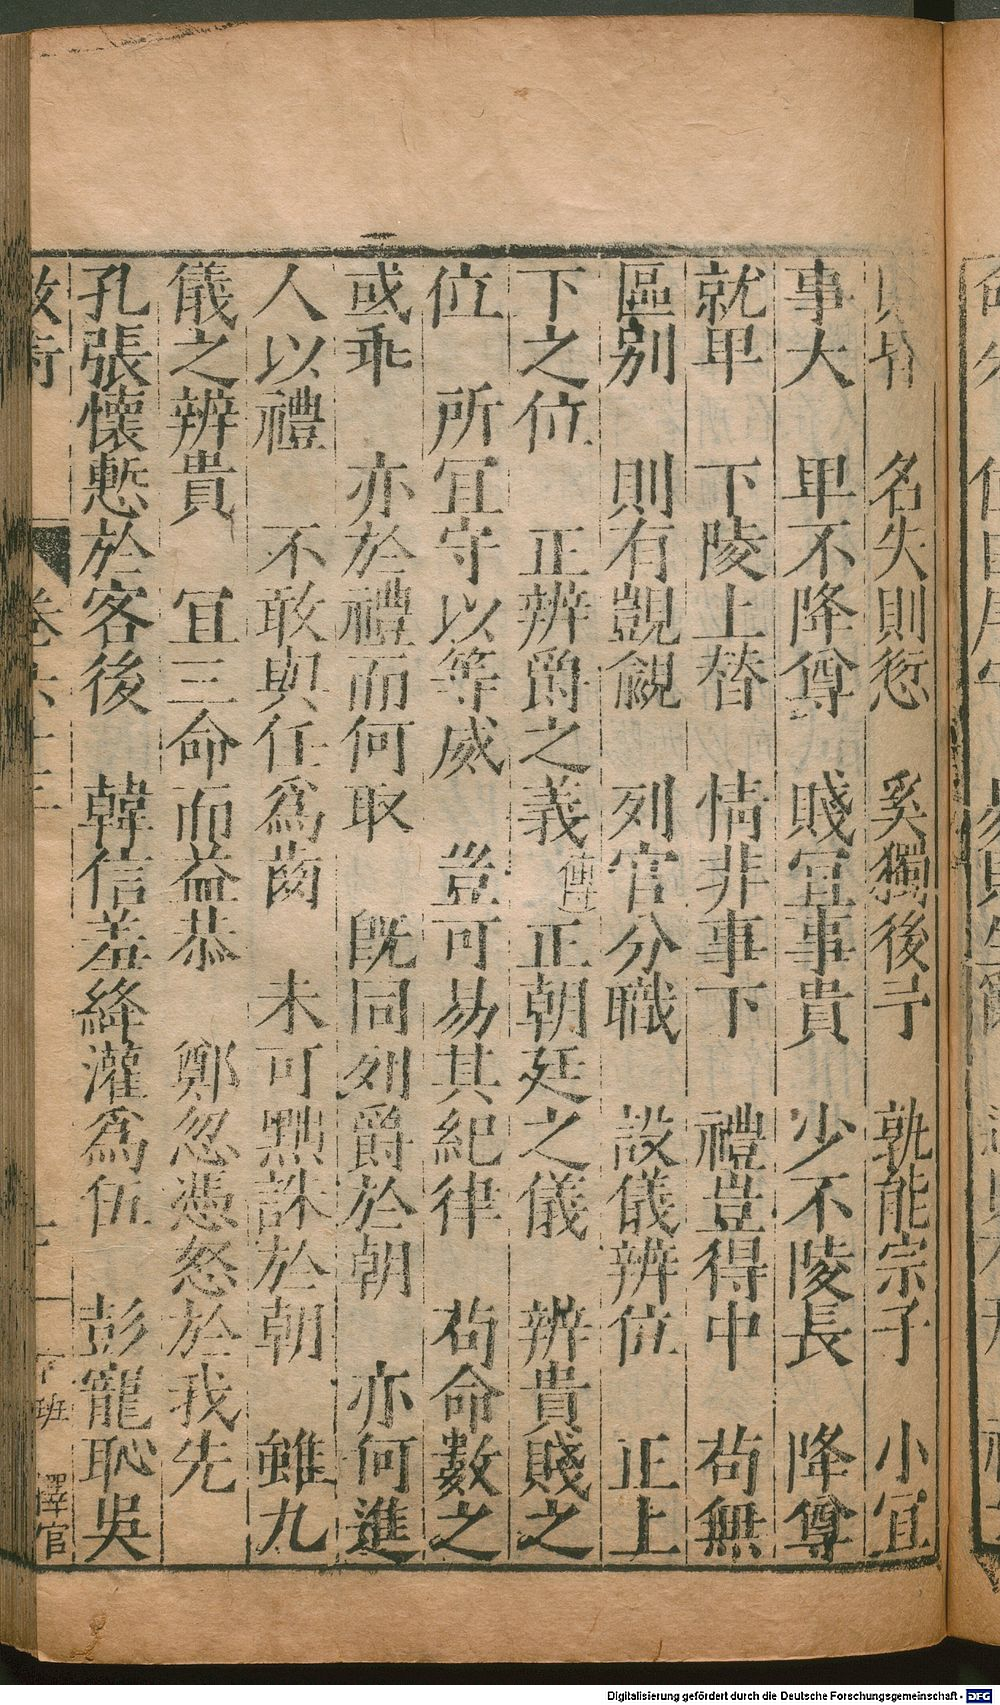 名失則愆 奚獨後于 孰能宗子 小宜
事大 卑不降尊 賤宜事貴 少不陵長 降尊
就卑 下陵上替 情非事下 禮豈得中 苟無
區別 則有覬覦 列官分職 設儀辨位 正上
下之位 正辨爵之義 傳正朝廷之儀 辨貴賤之
位 所宜守以等威 豈可易其紀律 苟命數之
或乖 亦於禮而何取 旣同列爵於朝 亦何進
人以禮 不敢與任爲齒 未可黜誅於朝 雖九
儀之辨貴 宜三命而益恭 鄭忽憑怒於我先
孔張懷慙於客後 韓信羞絳灌爲伍 彭寵恥吳
卷六十三
班
擇官
Digitalisierung gefördert durch die Deutsche Forschungsgemeinschaft - DFG